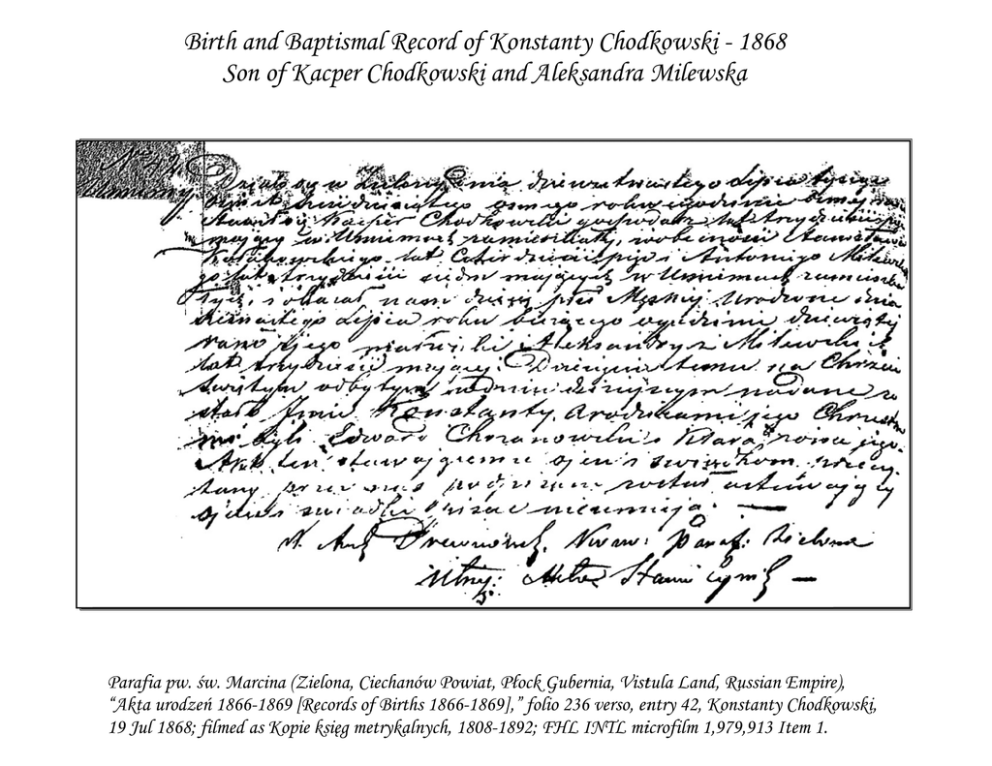 Birth and Baptismal Record of Konstanty Chodkowski - 1868
Son of Kacper Chodkowski and Aleksandra Milewska
No 42
Umiemy
Działo się w Zielony dnia dziewietnastego Lipca tysiąc
osmego roku o godzinie
Kacper Chodkowski gospodarz lat trzydzieści
mający w Umiemach zamieszkały, w obecności Stanisława
lat Czterdzieści pięć i Antoniego Milewskie
go lat trzydzieści siedm mających w Umiemach zamieszka
łych, i okazał nam dziecię płci Męskiej Urodzone dnia
Lipca roku bieżącego o godzinie dziewiątej
rano z jego małżonki Aleksandry z Milewskich
lat trzydzieści mającej. Dziecięciu temu na Chrzcie
świętym odbytym w dniu dzisiejszym nadane zo
stało Imie Konstanty, a rodzicami jego Chrzestne
mi byli Edward Chrzanowski i Klara żona jego.
Akt ten stawającemu ojcu i świadkom przeczy
tany przez nas podpisany został
ojciec i świadki pisać nieumieją. —
X. Paraf: Zielona
Utrzy:
Parafia pw. św. Marcina (Zielona, Ciechanów Powiat, Płock Gubernia, Vistula Land, Russian Empire),
“Akta urodzeń 1866-1869 [Records of Births 1866-1869],” folio 236 verso, entry 42, Konstanty Chodkowski,
19 Jul 1868; filmed as Kopie ksiąg metrykalnych, 1808-1892; FHL INTL microfilm 1,979,913 Item 1.